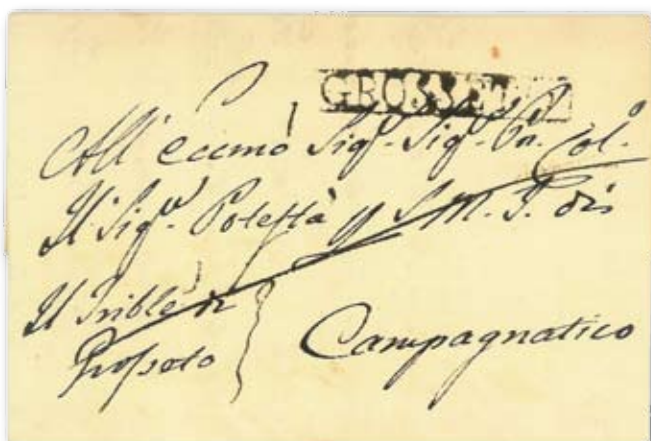 GROSSETO
All' Eccmo Sigr. Sigr. Pn. Col.
Il Sigr. Potestà S.M.I. di
Il Trible di
Grosseto Campagnatico